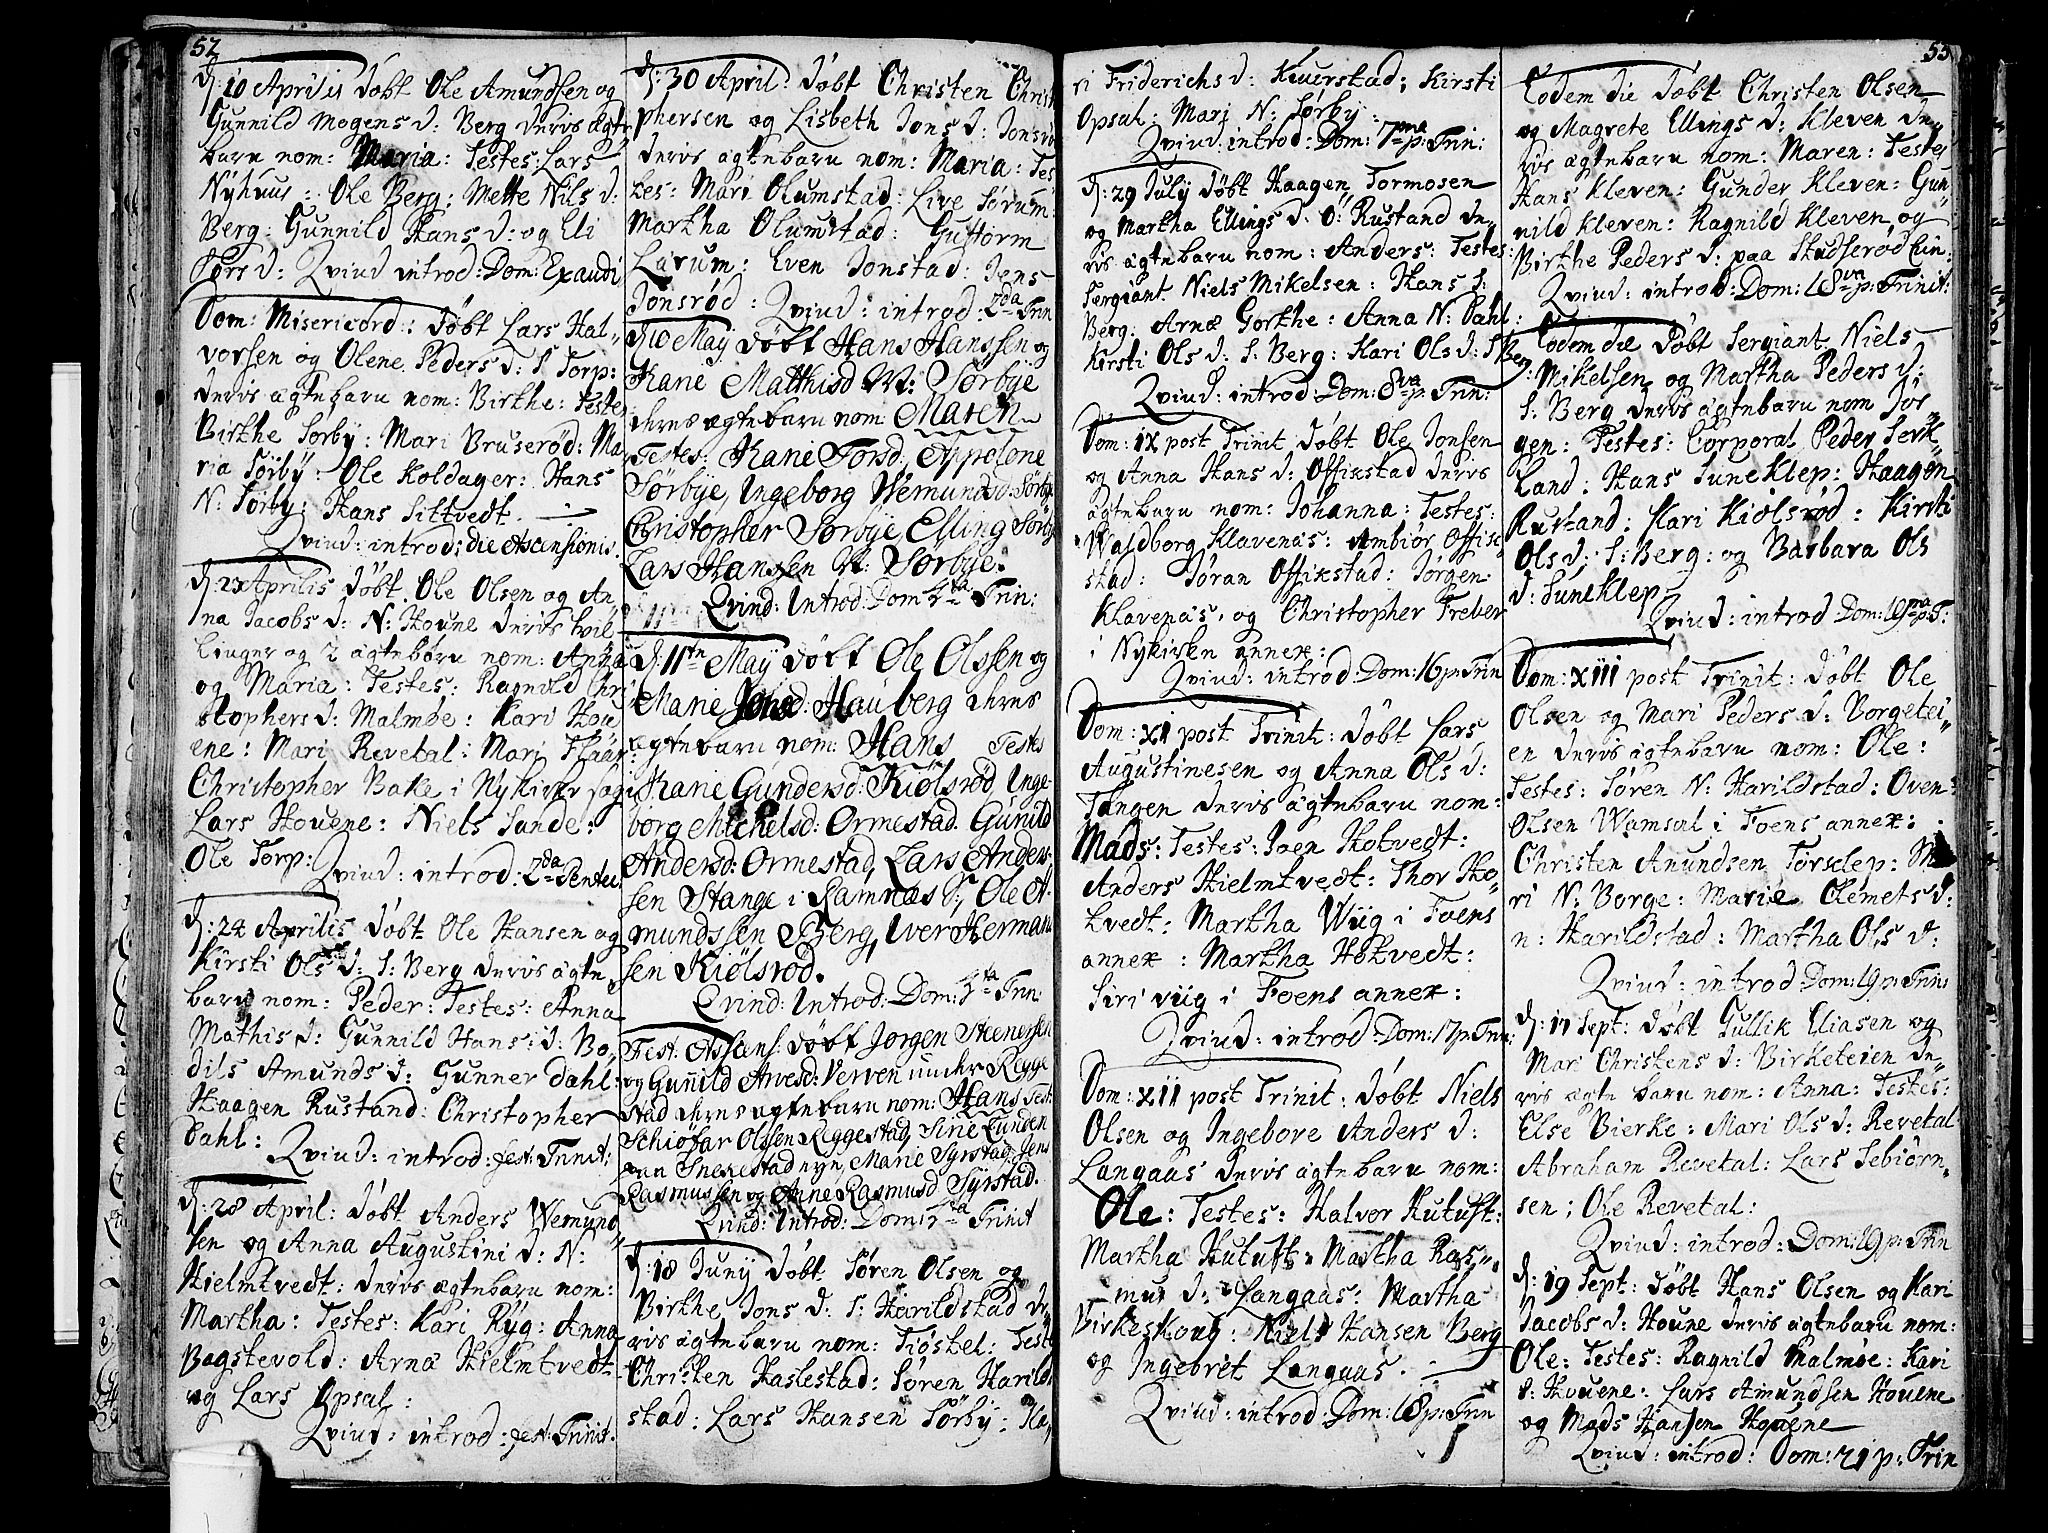 52
d: 10 Aprilis døbt Ole Amundsen og
Gunnild Mogens d: Berg deris ægte
barn nom: Maria: Testes: Lars
Nÿhuus: Ole Berg: Mette Nils d:
Berg: Gunnild Hans d: og Eli
Tors d: Qvind introd: Dom: Exaudi
Dom: Misericord: døbt Lars Hal-
vorsen og Olene Peders d: S Torp:
deris ægtebarn nom: Birthe: Teste
Birthe Sørby: Mari Bruserød: Ma
ria Sørbÿ: Ole Koldager: Hans
N: Sørby: Hans Sittvedt.
Qvind: introd: die Ascensionis.
d: 23 Aprilis døbt Ole Olsen og An
na Jacobs d: N: Houne deris tvil-
linger og 2 ægtebørn nom: Anna
og Maria: Testes: Ragnild Chri
stophers d: Malmøe: Kari Hou
ene: Mari Revetal: Mari Flaar:
Christopher Bake i Nykirke sogn
Lars Houene: Niels Sande:
Ole Torp: Qvind: introd: 2da Pentec:
d: 24 Aprilis døbt Ole Hansen og
Kirsti Ols d: S: Berg deris ægte
barn nom: Peder: Testes: Anna
Mathis d: Gunnild Hans: d: Bo,
dils Amunds d: Gunner Dahl:
Haagen Rustand: Christopher
Dahl: Qvind: introd: fest: Trinit:
d: 28 April: døbt Anders Wemund
sen og Anna Augustini d: N:
Hielmtvedt: deris ægtebarn nom:
Martha: Testes: Kari Ryg: Anna
Bogstevold: Arna Hielmtvedt
og Lars Opsal:
Qvind: introd: fest: Trinit.
d: 30 April: døbt Christen Christ
phersen og Lisbeth Jons d: Jonsrø
deris ægtebarn nom: Maria: Tes
tes: Mari Olumstad: Live Sørum:
Martha Olumstad: Guttorm
Larum: Even Jonstad: Jens
Jonsrød: Qvind: introd: 2da Trin
d 10 Maÿ døbt Hans Hanssen og
Karie Matthisd N: Sørbÿe
deres ægtebarn nom: Maren
Testes: Karie Torsd, Appolone
Sørbÿe, Ingeborg Wemundsd: Sørbÿe
Christopher Sørbÿe, Elling Sørbÿe
Lars Hanssen N: Sørbÿe.
Qvind: Introd: Dom 3ta Trin:
d: 11te Maÿ døbt Ole Olssen og
Marie Jonsd: Hauberg deres
ægtebarn nom: Hans Testes
Karie Gundersd: Kiølsrød, Inge-
borg Michelsd: Ormestad. Gunild
Andersd: Ormestad, Lars Anders-
sen Stange i Ramnæs S:, Ole A-
mundssen Berg, Iver Herman
sen Kiølsrød.
Qvind: Introd: Dom: 3ta Trin:
Fest: Assens: døbt Jorgen Steenersen
og Gunild Arvesd: Verven under Regge
stad deres ægtebarn nom: Hans Test:
Schiøfar Olssen Reggestad, Sirie Lunden
paa Snekestad eyn, Marie Syrstag, Jens
Rasmussen og Anne Rasmusd Sÿrstad.
Qvind: Introd: Dom: 3ta Trinit
d: 18 Junÿ døbt Søren Olsen og
Birthe Jons d: S: Harildstad de
ris ægtebarn nom: Tiøstel: Teste
Christen Haslestad: Søren Harild
stad: Lars Hansen Sørbÿ: Ka,
ri Friderichs d: Kuerstad: Kirsti
Opsal: Mari N: Sørby:
Qvind: introd: Dom: 7ma p: Trin:
d: 29 Julÿ døbt Haagen Tormosen
og Martha Ellings d: Ø: Rustand de
ris ægtebarn nom: Anders: Testes:
Sergiant Niels Mikelsen: Hans S:
Berg: Arnæ Gorthe: Anna N: Dahl:
Kirsti Ols d: S: Berg: Kari Ols d: S Berg
Qvind: introd: Dom: 8va p: Trin:
Dom: IX post Trinit døbt Ole Jonsen
og Anna Hans d: Offikstad deris
ægtebarn nom: Johanna: Testes:
Waldborg Klavenæs: Ambiør Offik
stad: Jøran Offikstad: Jørgen
Klavenæs, og Christopher Treber
i Nykirken annex:
Qvind: introd: Dom: 16 p: Trin
Dom: XI post Trinit: døbt Lars
Augustinesen og Anna Ols d:
Tangen deris ægtebarn nom:
Mads: Testes: Joen Hotvedt:
Anders Hielmtvedt: Thor Ho
tvedt: Martha Wiig i Foens
annex: Martha Hotvedt:
Siri Viig i Foens annex:
Qvind: introd: Dom: 17 p: Trin:
Dom: XII post Trinit: døbt Niels
Olsen og Ingebore Anders d:
Langaas deris ægtebarn nom:
Ole: Testes: Halvor Hutuft:
Martha Hutuft: Martha Ras
mus d: Langaas: Martha
Birkeskong: Niels Hansen Berg
og Ingebret Langaas.
Qvind: introd: Dom: 18 p: Trin
53
Eodem die døbt Christen Olsen
og Magrete Ellings d: Kleven de
ris ægtebarn nom: Maren: Testes
Hans Kleven: Gunder Kleven: Gun
nild Kleven: Ragnild Kleven og
Birthe Peders d: paa Skudserød Eien:
Qvind: introd: Dom: 18va p: Trinit:
Eodem die døbt Sergiant Niels
Mikelsen og Martha Peders d:
S: Berg deris ægtebarn nom Jør
gen: Testes: Corporal Peder Serk
Land: Hans Suneklep: Haagen
Rustand: Kari Kiølsrød: Kirsti
Ols d: S: Berg: og Barbara Ols
d: Suneklep:
Qvind: introd: Dom: 19na p: T.
Dom: XIII post Trinit: døbt Ole
Olsen og Mari Peders d: Borgetei
en deris ægtebarn nom: Ole:
Testes: Søren N: Harildstad: Oven
Olsen Wamsal i Foens annex:
Christen Anundsen Torsklep: Ma
ri N: Borge: Marie Olemets d:
n: Harildstad: Martha Ols d:
Qvind: introd Dom: 19 p: Trin:
d: 17 Sept: døbt Gullik Eliasen og
Mari Christens d: Birketeien de
ris ægte barn nom: Anna: Testes:
Else Bierke: Mari Ols d: Revetal
Abraham Revetal: Lars Sebiørn
sen; Ole Revetal:
Qvind: introd: Dom: 19 p: Trin
d: 19 Sept: døbt Hans Olsen og Kari
Jacobs d: Houne deris ægtebarn nom:
Ole: Testes: Ragnild Malmøe: Kari
S: Houene: Lars Amundsen Houene
og Mads Hansen Houene
Qvind: introd: Dom: 21 p: Trin